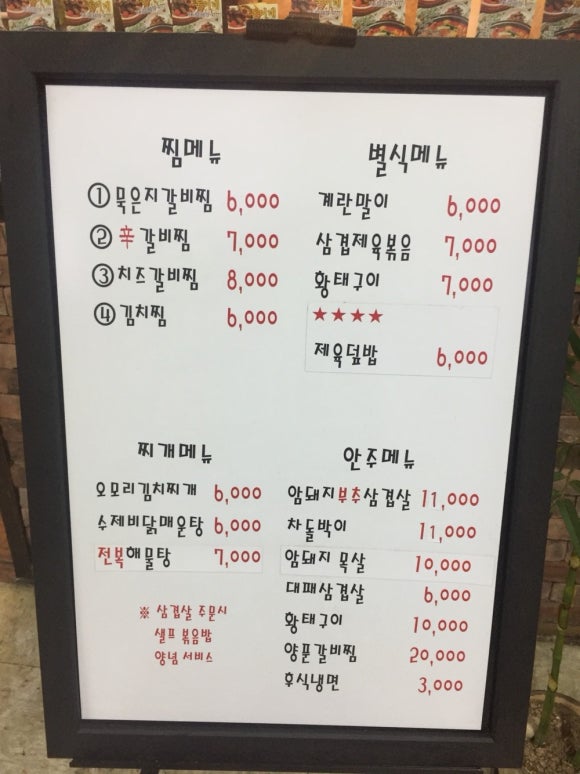 찜메뉴
①묵은지갈비찜 6,000
②辛갈비찜 7,000
③치즈갈비찜 8,000
④김치찜 6,000
별식메뉴
계란말이 6,000
삼겹제육볶음 7,000
황태구이 7,000
★★★★
제육덮밥 6,000
찌개메뉴
오모리김치찌개 6,000
수제비닭매운탕 6,000
전복해물탕 7,000
※ 삼겹살 주문시
셀프 볶음밥
양념 서비스
안주메뉴
암퇘지부추삼겹살 11,000
차돌박이 11,000
암퇘지 목살 10,000
대패삼겹살 6,000
황태구이 10,000
양푼갈비찜 20,000
후식냉면 3,000